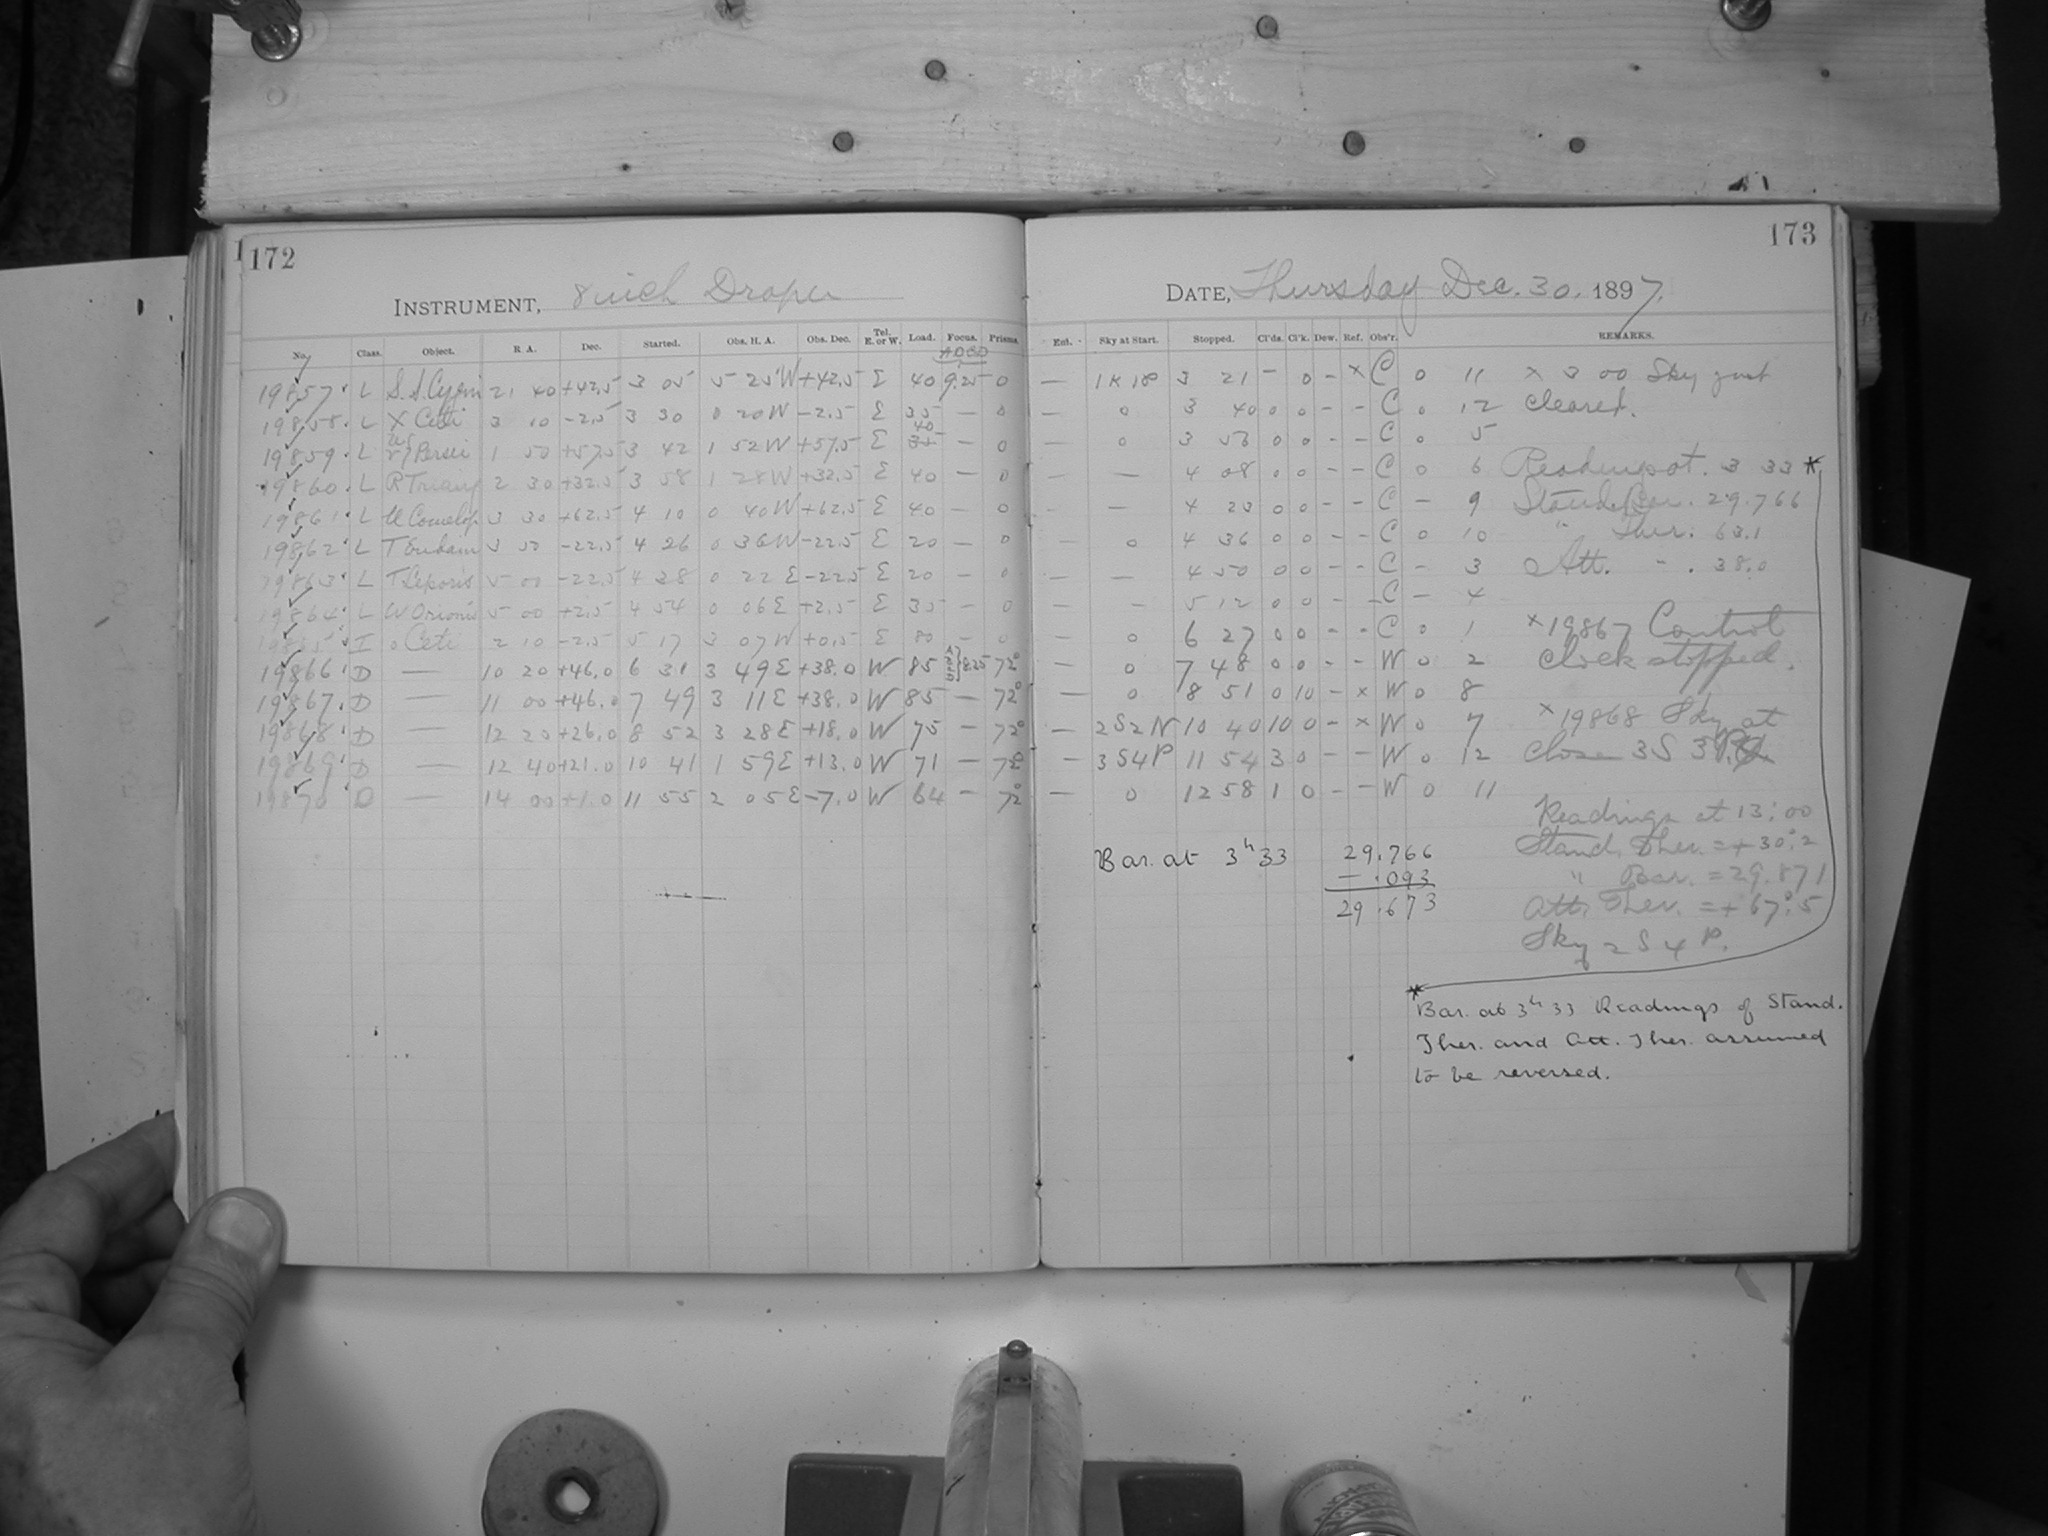 172
INSTRUMENT, 8 inch Draper
No. Class. Object. R A. Dec. Started. Obs. H. A. Obs. Dec. Tel. E. or W. Load. Focus. Prisms.
ADCD
19857 L S.S. Cygni 21 40 +42.5 3 05 5 25 W +42.5 E 40 9.25 0
19858 L X Ceti 3 10 -2.5 3 30 0 20 W -2.5 E 35 — 0
19859 L Persei 1 50 +57.5 3 42 1 52 W +57.5 E 40 35 — 0
19860 L R Triang 2 30 +32.5 3 58 1 28 W +32.5 E 40 — 0
19861 L U Camelop 3 30 +62.5 4 10 0 40 W +62.5 E 40 — 0
19862 L T Eridani 3 50 -22.5 4 26 0 36 W -22.5 E 20 — 0
19863 L T Leporis 5 00 -22.5 4 38 0 22 E -22.5 E 20 — 0
19864 L W Orionis 5 00 +2.5 4 54 0 06 E +2.5 E 35 — 0
19865 I o Ceti 2 10 -2.5 5 17 3 07 W +0.5 E 80 — 0
19866 D — 10 20 +46.0 6 31 3 49 E +38.0 W 85 8.25 72°
19867 D — 11 00 +46.0 7 49 3 11 E +38.0 W 85 — 72°
19868 D — 12 20 +26.0 8 52 3 28 E +18.0 W 75 — 72°
19869 D — 12 40 +21.0 10 41 1 59 E +13.0 W 71 — 72°
19870 D — 14 00 +1.0 11 55 2 05 E -7.0 W 64 — 72°
173
DATE, Thursday Dec. 30. 1897.
Ent. Sky at Start. Stopped. Cl'ds. Cl'k. Dew. Ref. Obs'r. REMARKS.
— 1 K 18 3 21 - 0 - x C 0 11 x 3 00 Sky just
— 0 3 40 0 0 - - C 0 12 cleared.
— 0 3 53 0 0 - - C 0 5
— — 4 08 0 0 - - C 0 6 Readings at. 3 33 *
— — 4 23 0 0 - - C - 9 Stand. Bar. 29.766
— 0 4 36 0 0 - - C 0 10 " Ther. 63.1
— — 4 50 0 0 - - C - 3 Att. " . 38.0
— - 5 12 0 0 - - C - 4
— 0 6 27 0 0 - - C 0 1 x 19867 Control
— 0 7 48 0 0 - - W 0 2 clock stopped.
— 0 8 51 0 10 - x W 0 8
— 2S2N 10 40 10 0 - x W 0 7 x 19868 Sky at
— 3S4P 11 54 3 0 - - W 0 12 close 3S 3P.
— 0 12 58 1 0 - - W 0 11
Readings at 13:00
Stand. Ther. = +30°.2
" Bar. = 29.871
Att. Ther. = +67°.5
Sky 2 S 4 P.
Bar. at 3h 33 29.766
— .093
29.673
* Bar. at 3h 33 Readings of Stand.
Ther. and Att. Ther. assumed
to be reversed.